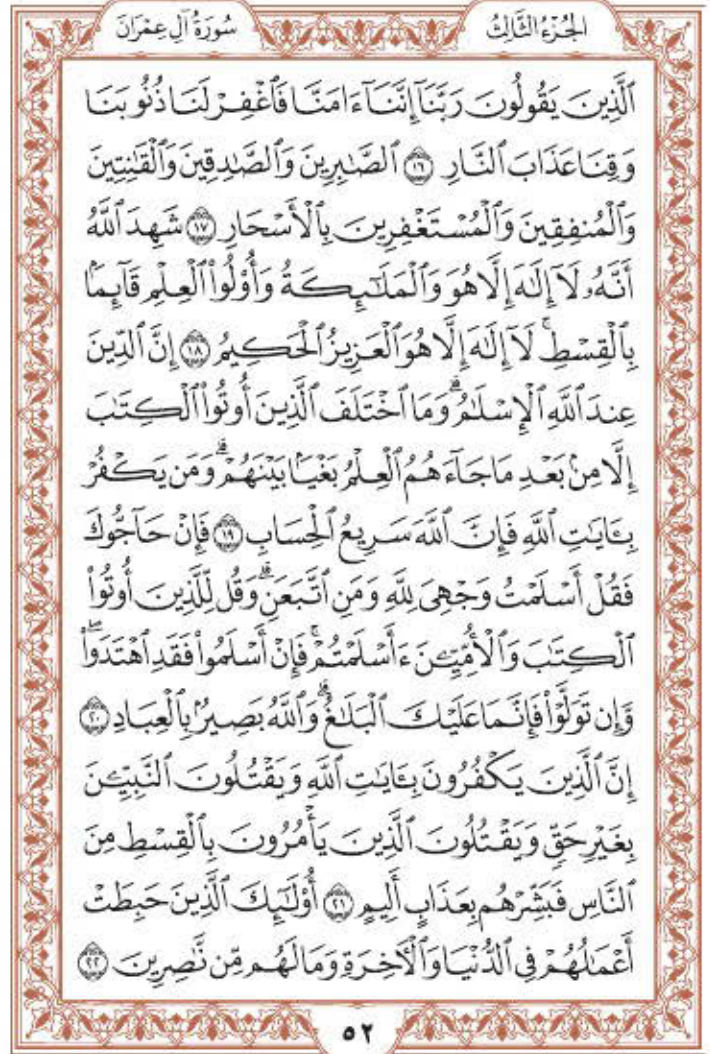 الجُزْءُ الثَّالِثُ
سُورَةُ آلِ عِمْرَانَ
ٱلَّذِينَ يَقُولُونَ رَبَّنَآ إِنَّنَآ ءَامَنَّا فَٱغْفِرْ لَنَا ذُنُوبَنَا
وَقِنَا عَذَابَ ٱلنَّارِ ١٦ ٱلصَّٰبِرِينَ وَٱلصَّٰدِقِينَ وَٱلْقَٰنِتِينَ
وَٱلْمُنفِقِينَ وَٱلْمُسْتَغْفِرِينَ بِٱلْأَسْحَارِ ١٧ شَهِدَ ٱللَّهُ
أَنَّهُۥ لَآ إِلَٰهَ إِلَّا هُوَ وَٱلْمَلَٰٓئِكَةُ وَأُو۟لُوا۟ ٱلْعِلْمِ قَآئِمًۢا
بِٱلْقِسْطِۚ لَآ إِلَٰهَ إِلَّا هُوَ ٱلْعَزِيزُ ٱلْحَكِيمُ ١٨ إِنَّ ٱلدِّينَ
عِندَ ٱللَّهِ ٱلْإِسْلَٰمُۗ وَمَا ٱخْتَلَفَ ٱلَّذِينَ أُوتُوا۟ ٱلْكِتَٰبَ
إِلَّا مِنۢ بَعْدِ مَا جَآءَهُمُ ٱلْعِلْمُ بَغْيَۢا بَيْنَهُمْۗ وَمَن يَكْفُرْ
بِـَٔايَٰتِ ٱللَّهِ فَإِنَّ ٱللَّهَ سَرِيعُ ٱلْحِسَابِ ١٩ فَإِنْ حَآجُّوكَ
فَقُلْ أَسْلَمْتُ وَجْهِىَ لِلَّهِ وَمَنِ ٱتَّبَعَنِۗ وَقُل لِّلَّذِينَ أُوتُوا۟
ٱلْكِتَٰبَ وَٱلْأُمِّيِّـۧنَ ءَأَسْلَمْتُمْۚ فَإِنْ أَسْلَمُوا۟ فَقَدِ ٱهْتَدَوا۟ۖ
وَّإِن تَوَلَّوْا۟ فَإِنَّمَا عَلَيْكَ ٱلْبَلَٰغُۗ وَٱللَّهُ بَصِيرٌۢ بِٱلْعِبَادِ ٢٠
إِنَّ ٱلَّذِينَ يَكْفُرُونَ بِـَٔايَٰتِ ٱللَّهِ وَيَقْتُلُونَ ٱلنَّبِيِّـۧنَ
بِغَيْرِ حَقٍّ وَيَقْتُلُونَ ٱلَّذِينَ يَأْمُرُونَ بِٱلْقِسْطِ مِنَ
ٱلنَّاسِ فَبَشِّرْهُم بِعَذَابٍ أَلِيمٍ ٢١ أُو۟لَٰٓئِكَ ٱلَّذِينَ حَبِطَتْ
أَعْمَٰلُهُمْ فِى ٱلدُّنْيَا وَٱلْءَاخِرَةِ وَمَا لَهُم مِّن نَّٰصِرِينَ ٢٢
٥٢